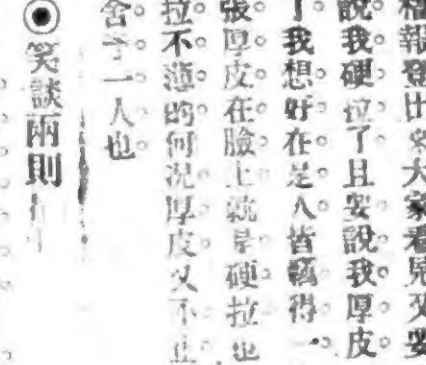 報登出來大家看見又要
說我硬拉了且要說我厚皮
了我想好在是人皆稱得一
張厚皮在臉上就是硬拉也
拉不薄的何況厚皮又不止
舍予一人也
◉笑談兩則